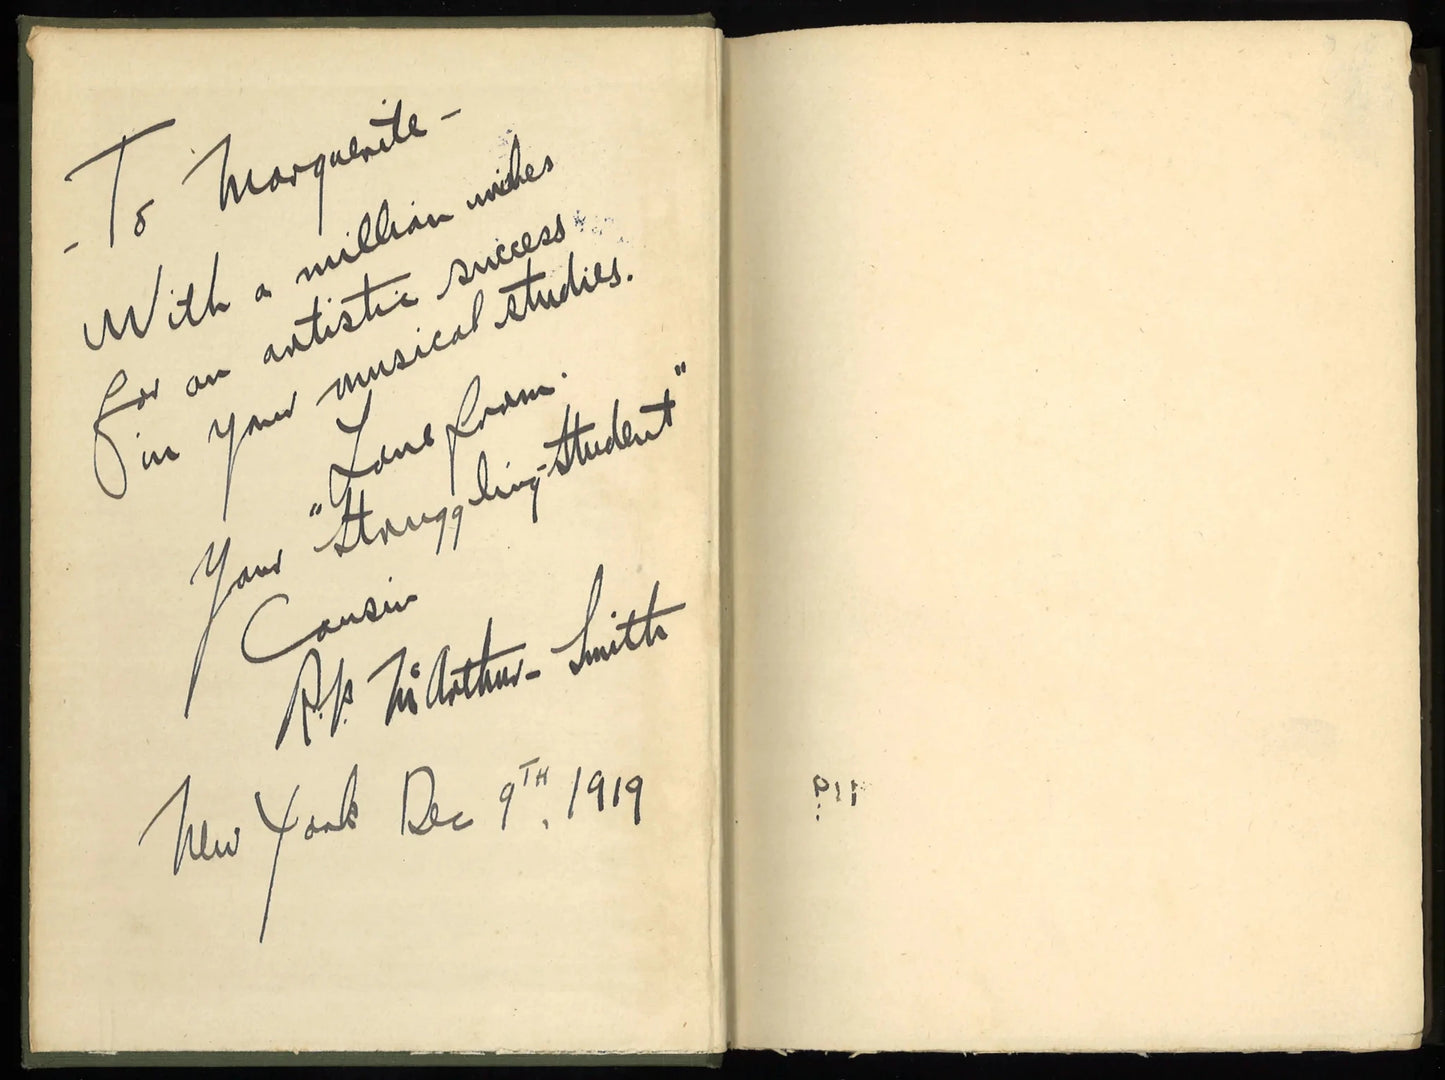 - To Marguerite -
With a million wishes
for an artistic success
in your musical studies.
Love from.
Your "Struggling-Student"
Cousin
R.P. McArthur-Smith
New York Dec 9TH, 1919